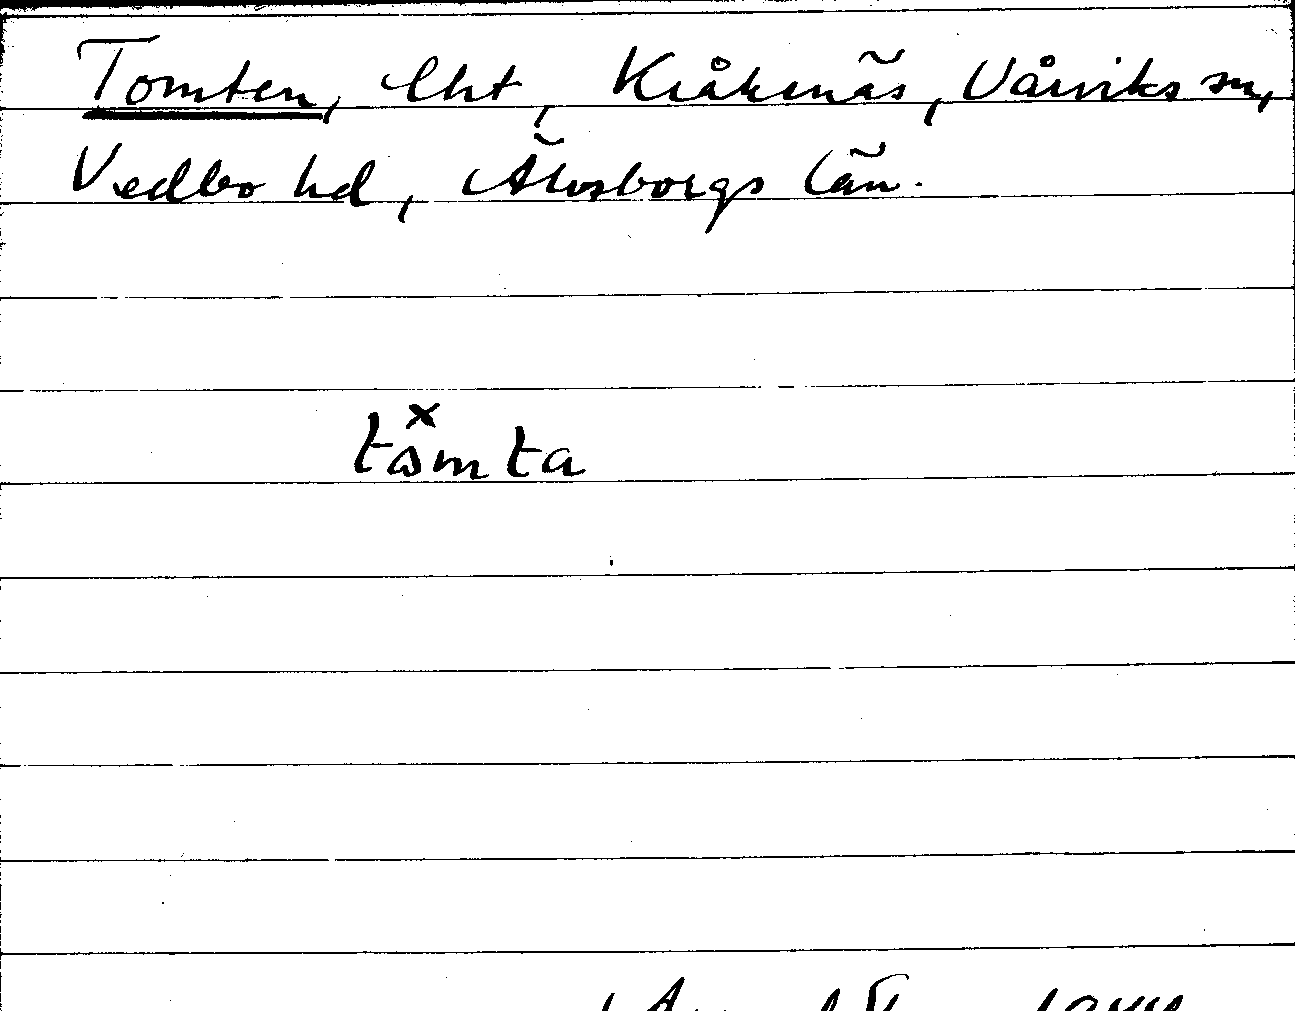 Tomten, lht, Kråkenäs, Vårviks sn,
Vedbo hd, Älvsborgs län.
tå̽mta